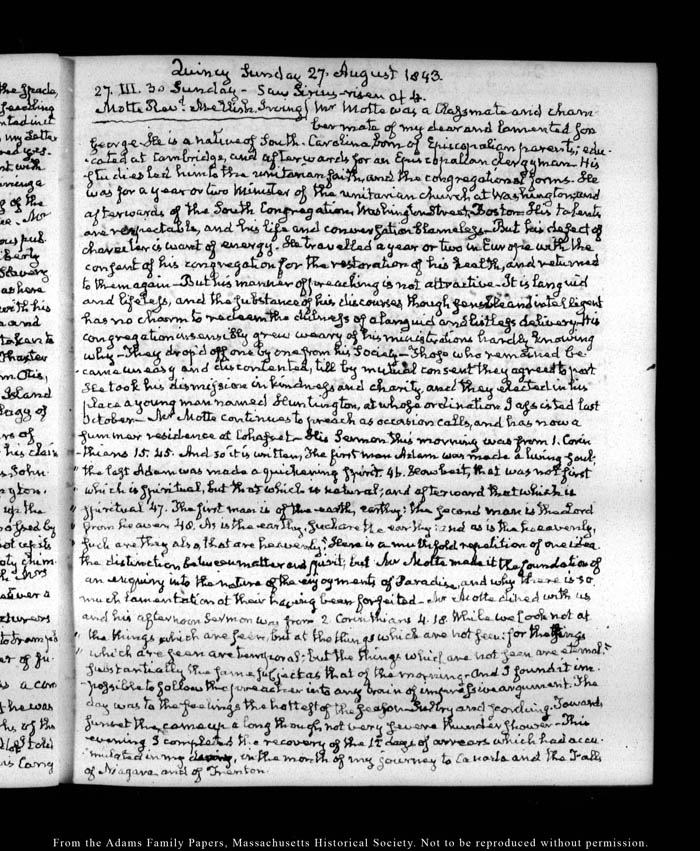 Quincy Sunday 27. August 1843.
27. III. 30 Sunday - Saw Sirius risen at 4.
Motte Revd. Mellish Irving / Mr Motte was a Classmate and cham
ber mate of my dear and lamented son
George. He is a native of South-Carolina, born of Episcopalian parents; edu-
cated at Cambridge, and afterwards for an Episcopalian clergyman. His
studies led him to the unitarian faith, and the congregational forms. He
was for a year or two Minister of the unitarian church at Washington, and
afterwards of the South Congregation, Washington Street, Boston. His talents
are respectable, and his life and conversation blameless. But his defect of
character is want of energy. He travelled a year or two in Europe with the
consent of his congregation for the restoration of his health, and returned
to them again - But his manner of preaching is not attractive - It is languid
and lifeless, and the substance of his discourses though sensible and intelligent
has no charm to redeem the dulness of a languid and listless delivery. His
congregation insensibly grew weary of his ministrations hardly knowing
why - They drop'd off one by one from his Society - Those who remained be-
came uneasy and discontented, till by mutual consent they agreed to part
He took his dismission in kindness and charity, and they elected in his
place a young man named Huntington, at whose ordination I assisted last
October - Mr Motte continues to preach as occasion calls, and has now a
summer residence at Cohasset - His Sermon this morning was from 1. Corin
-thians 15. 45. And so it is written, The first man Adam was made a living soul;
" the last Adam was made a quickening spirit. 46. Howbeit, that was not first
" which is spiritual, but that which is natural; and afterward that which is
" spiritual 47. The first man is of the earth, earthy: the second man is the Lord
" from heaven 48. As is the earthy, such are the earthy: and as is the heavenly,
such are they also that are heavenly." Here is a multifold repetition of one idea
the distinction between matter and spirit; but Mr Motte made it the foundation of
an enquiry into the nature of the enjoyments of Paradise, and why there is so
much lamentation at their having been forfeited - Mr Motte dined with us
and his afternoon Sermon was from 2 Corinthians 4. 18. While we look not at
" the things which are seen, but at the things which are not seen: for the things
" which are seen are temporal; but the things which are not seen are eternal."
Substantially the same subject as that of the morning - And I found it im-
-possible to follow the preacher into any train of impressive argument. The
day was to the feelings the hottest of the season - Sultry and scorching. Towards
sunset there came up a long though not very severe thunder shower - This
evening I completed the recovery of the 17 days of arrears which had accu-
-mulated in my diary, in the month of my journey to Canada and the Falls
of Niagara and of Trenton.
From the Adams Family Papers, Massachusetts Historical Society. Not to be reproduced without permission.